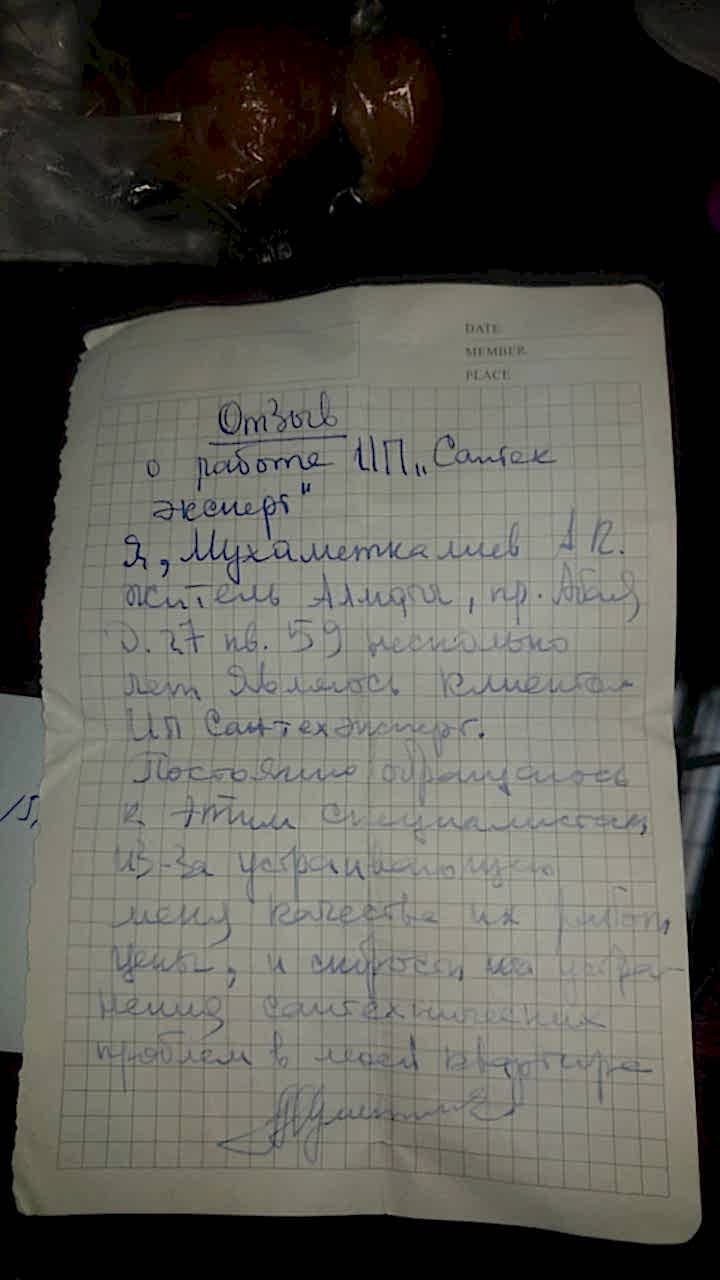 DATE
MEMBER
PLACE
Отзыв
о работе ИП „Сантек
эксперт"
Я, Мухаметкалиев А К.
житель Алматы, пр. Абая
д. 27 кв. 59 несколько
лет являюсь клиентом
ИП Сантехэксперт.
Постоянно обращаюсь
к этим специалистам,
из-за устраивающего
меня качества их работ,
цены, и скорости на устра-
нения сантехнических
проблем в моей квартире